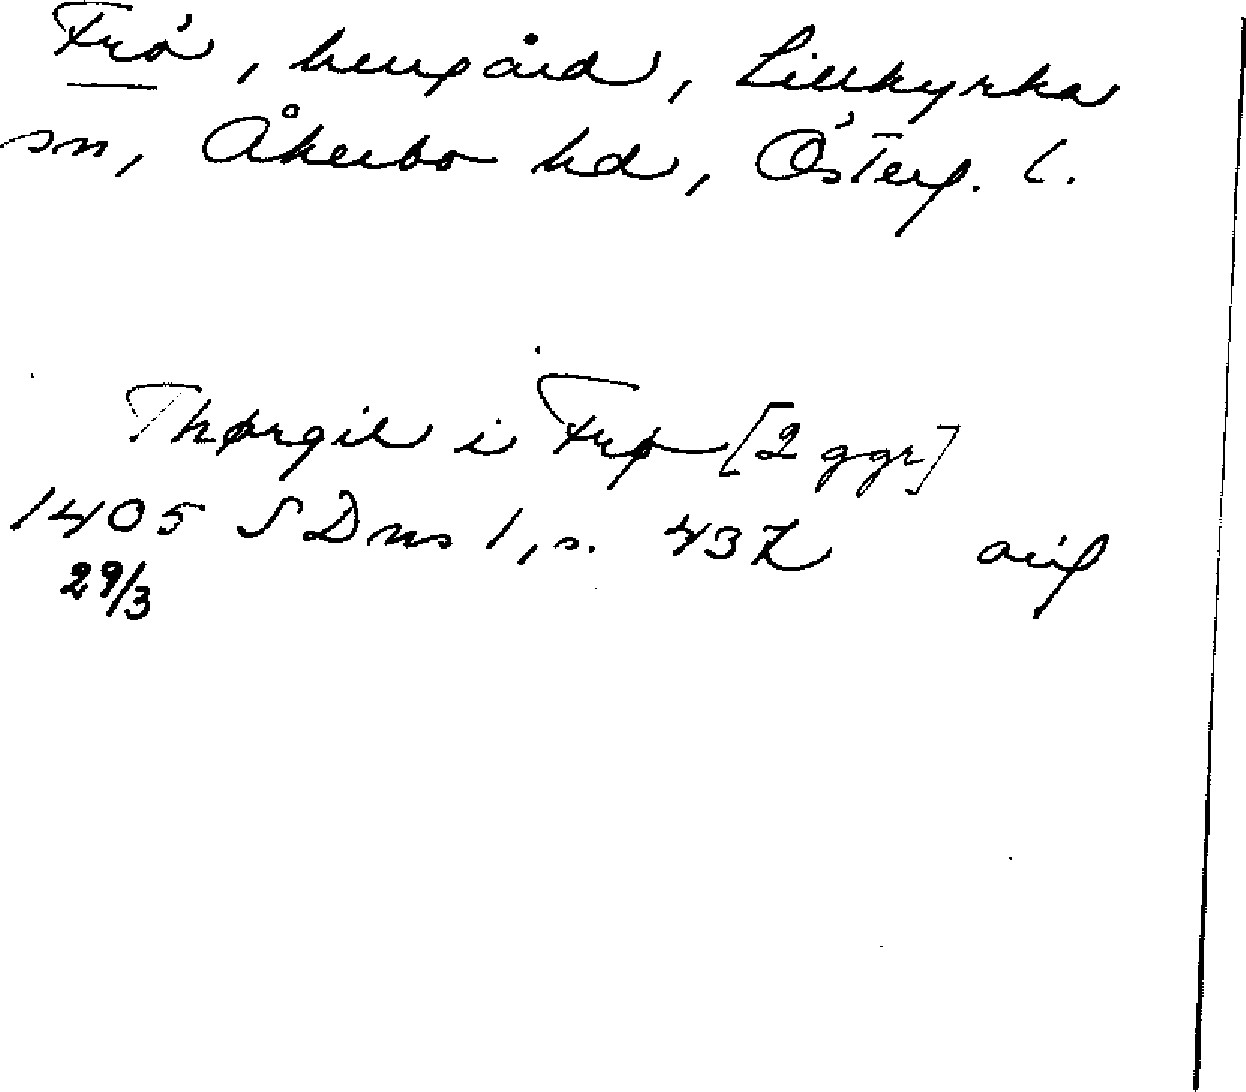 Frö, herrgård, Lillkyrka
sn, Åkerbo hd, Österg. l.
Thørgil i Frø [2 ggr]
1405 SDns 1, s. 437 orig
29/3